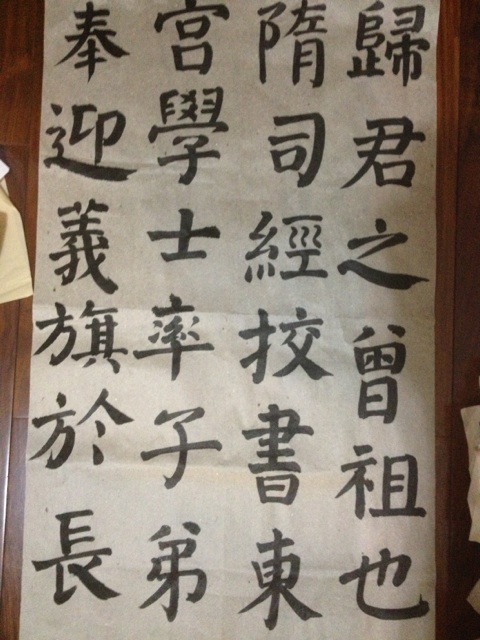 歸君之曾祖也
隋司經挍書東
宮學士率子弟
奉迎義旗於長